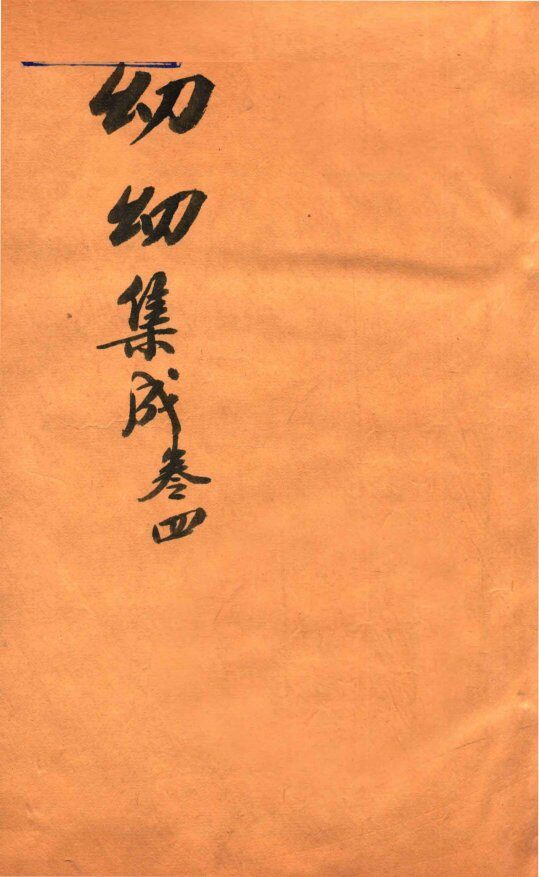 幼幼集成卷四